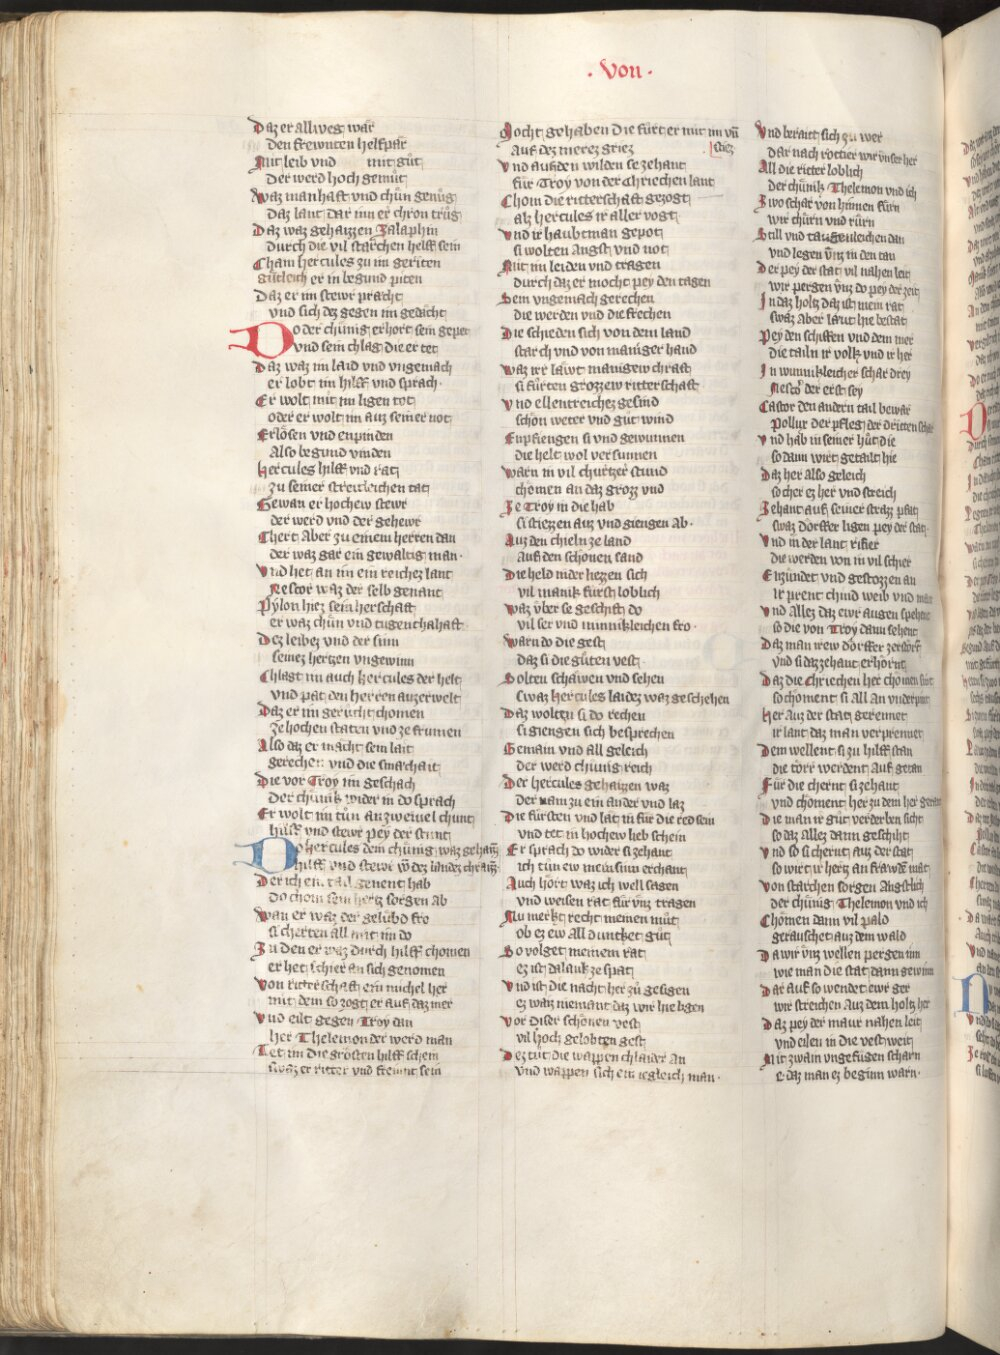 · Von ·
Daz er allweg wär
den frewnten helfpär
Mit leib vnd mit gůt
Der werd hoch gemůt
Waz manhaft vnd chůn genůg
Daz lant dar inn er chron trůg
Daz waz gehaizzen Salaphin
durch die vil starchen helff sein
Cham hercules zu im geriten
gütleich er in begund piten
Daz er im stewr prächt
vnd sich dez gegen im gedächt
Do der chünig erhort sein gepet
vnd sein chlag die er tet
Daz waz im laid vnd vngemach
er lobt im hilff vnd sprach ·
Er wolt mit im ligen tot
oder er wolt im auz seiner not
Erlösen vnd enpinden
Also begund vinden
hercules hilff vnd rat
zu seiner streitleichen tat
Gewan er hochew stewr
der werd vnd der gehewr
Chert Aber zu einem herren dan
der waz gar ein gewaltig man ·
Vnd het an im ein reichez lant
Nestor waz der selb genant
Pylon hiez sein herschaft
er waz chůn vnd tugenthahaft
Dez leibez vnd der sinn
seinez hertzen vngewinn
Chlagt im auch hercules der helt
vnd pat den herren auzerwelt
Daz er im gerücht chomen
ze hochen staten vnd ze frumen
Also daz er mächt sein lait
gerechen vnd die smachait
Die vor Troy im geschach
Der chünk wider in do sprach
Er wolt im tůn an zweiuel chunt
hilff vnd stewr pey der stunt
Do hercules dem chünig waz gehaiz
hilff vnd stewr vö dez landez chraiz
Der ich ein tail genent hab
do chom sein hertz sorgen ab
Wan er waz der gelübd fro
si cherten all mit im do
Zu den er waz durch hilff chomen
er het schier an sich genomen
Von ritterschaft ein michel her
mit dem so zogt er auf daz mer
Vnd eilt gegen Troy dan
her Thelemon der werd man
Tet im die grösten hilff schein
swaz er ritter vnd frewnt sein
Mocht gehaben die fürt er mit im vn̄
Auf dez merez griez
stiez
Vnd auf den wilden se zehant
für Troy von der Chriechen lant
Chom die ritterschaft gezogt
alz hercules ir aller vogt
Vnd ir haubtman gepot
si wolten Angst vnd not
Mit im leiden vnd tragen
durch daz er mocht pey den tagen
Sein vngemach gerechen
die werden vnd die frechen
Die schieden sich von dem land
starch vnd von maniger hand
Waz ir e läwt manigew chraft
si fürten grozzew ritterschaft
Vnd ellentreichez gesind
schön weter vnd gůt wind
Enpfiengen si vnd gewunnen
die helt wol versunnen
Warn in vil churtzer stund
chomen an daz grozz vnd
Ze Troy in die hab
si stiezzen auz vnd giengen ab ·
Auz den chieln ze land
Auf den schönen sand
Die held nider liezzen sich
vil manik fürst loblich
Waz vber se geschift do
vil ser vnd minnikleichen fro ·
Warn do die gest
daz si die gůten vest ·
Solten schawen vnd sehen
Swaz hercules laidez waz geschehen
Daz woltzn si do rechen
si giengen sich besprechen
Gemain vnd all geleich
der werd chünig reich
Der hercules gehaizen waz
der nam zu ein ander vnd laz
Die fürsten vnd lat in für die red sein
vnd tet in hochew lieb schein
Er sprach do wider si zehant
ich tůn ew mein sinn erchant
Auch hört waz ich well sagen
vnd weisen rat für vnz tragen
Nu merkt recht meinen můt
ob ez ew all dunket gůt
So volget meinem rat
ez ist dalauk ze spat
Vnd ist die nacht her zů gesigen
ez waiz niemant daz wir hie ligen
Vor diser schönen vest
vil hoch gelobten gest
Dez tüt die wappen chlaider an
vnd wappen sich ein iegleich man ·
Vnd berait sich zu wer
dar nach rottier wir vnser her
All die ritter loblich
der chünik Thelemon vnd ich
Zwo schar von hinnen fürn
wir chürn vnd rürn
Still vnd taugenleichen dan
vnd legen vnz in den tan
Der pey der stat vil nahen leit
wir pergen vnz do pey der zeit
In daz holtz daz ist mein rat
swaz aber läut hie bestat
Pey den schiffen vnd dem mer
die tailn ir volk vnd ir her
In wunnikleicher schar drey
Nestor der erst sey
Castor den andern tail bewar
Pollux der pfleg der dritten schar
Vnd hab in seiner hůt die
so dann wirt getailt hie
Daz her also geleich
so cher ez her vnd streich
Zehant auf seiner strazz pfat
swaz dörffer ligen pey der stat
Vnd in der lant rifier
die werden von in vil schier
Enzündet vnd gestozzen an
ir prent chind weib vnd man
Vnd Allez daz ewr augen spehent
so die von Troy dann sehent
Daz man irew dörffer zerstört
vnd si daz zehant erhörnt
Daz die Chriechen her chomen sint
so choment si all an vnderpint
Her auz der stat gerennet
ir lant daz man verprennet
Dem wellent si zu hilff stan
die törr werdent auf getan
Für die chernt si zehant
vnd choment her zu dem her gerant
Die man ir gůt verderben sicht
so daz allez dann geschiht
Vnd so si chernt auz der stat
so wirt ir hertz an frawde mat
Von starchen sorgen Angstlich
der chünig Thelemon vnd ich
Chömen dann vil palo
gerauschet auz dem wald
Da wir vnz wellen pergen inn
wie man die stat dann gewinn
Dar auf so wendet ewr ger
wir streichen Auz dem holtz her
Daz pey der maur nahen leit
vnd eilen in die vest weit
Mit zwain vngefügen scharn
e daz man ez beginn warn ·